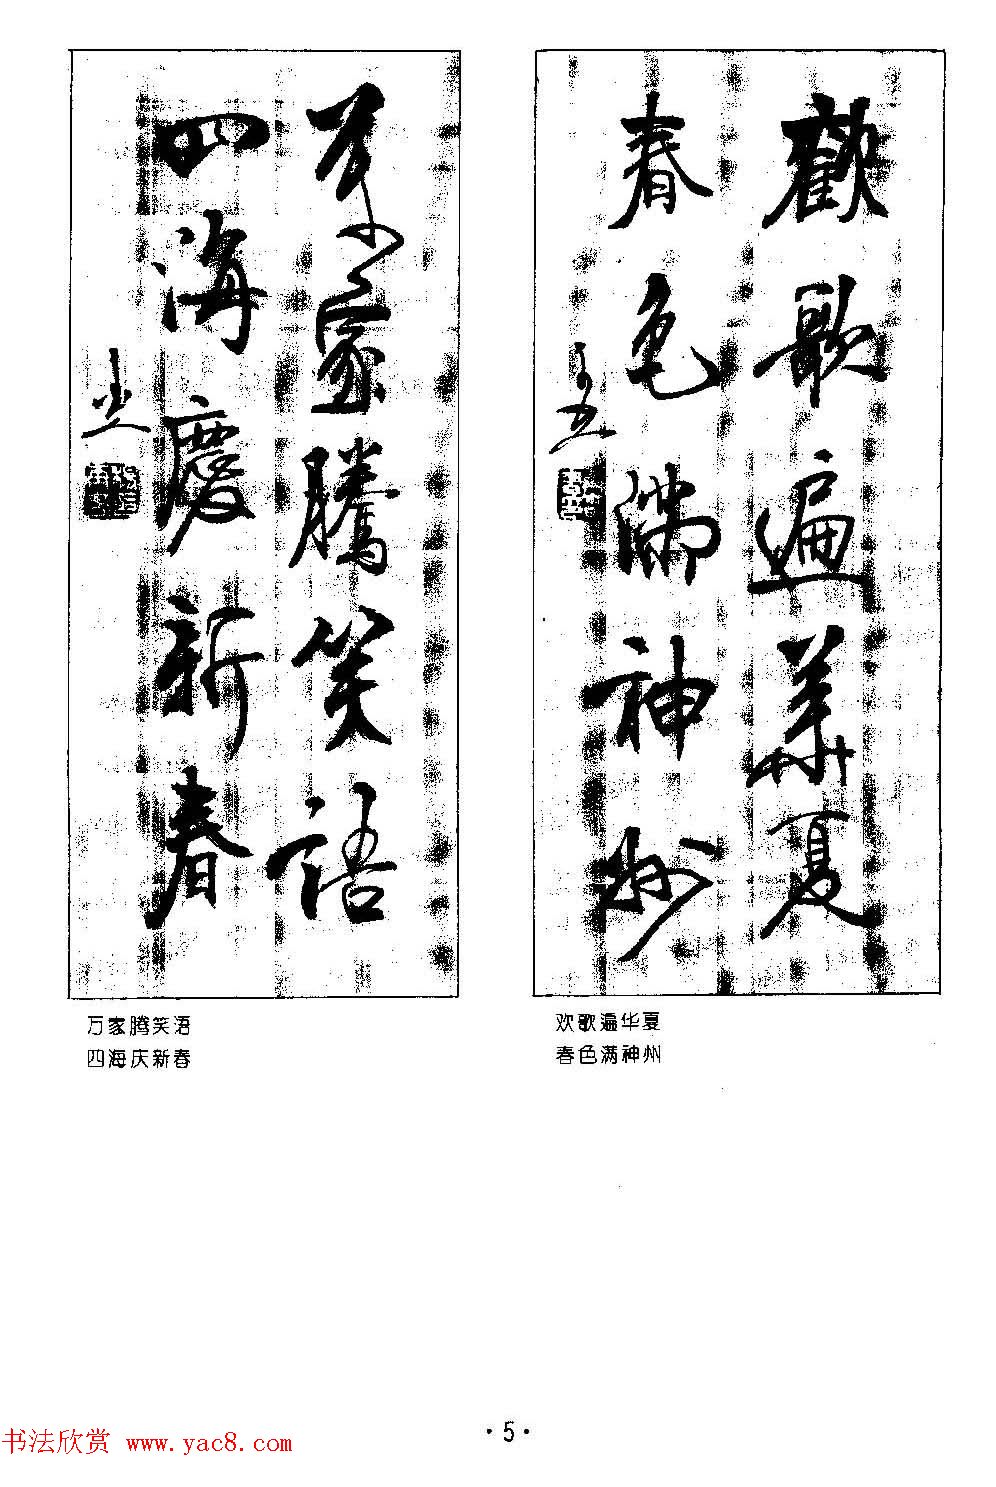 歡歌遍華夏
春色滿神州
欢歌遍华夏
春色满神州
萬家騰笑語
四海慶新春
万家腾笑语
四海庆新春
·5·
书法欣赏 www.yac8.com